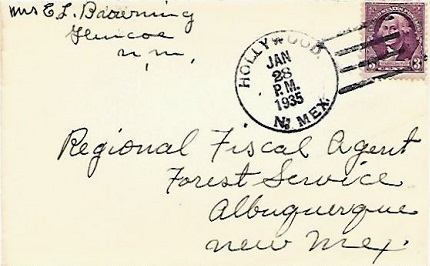 Mrs E L. Browning
Glencoe
N. M.
HOLLYWOOD.
JAN
28
P.M.
1935
N. MEX.
3 3
Regional Fiscal Agent
Forest Service
Albuquerque
New Mex.